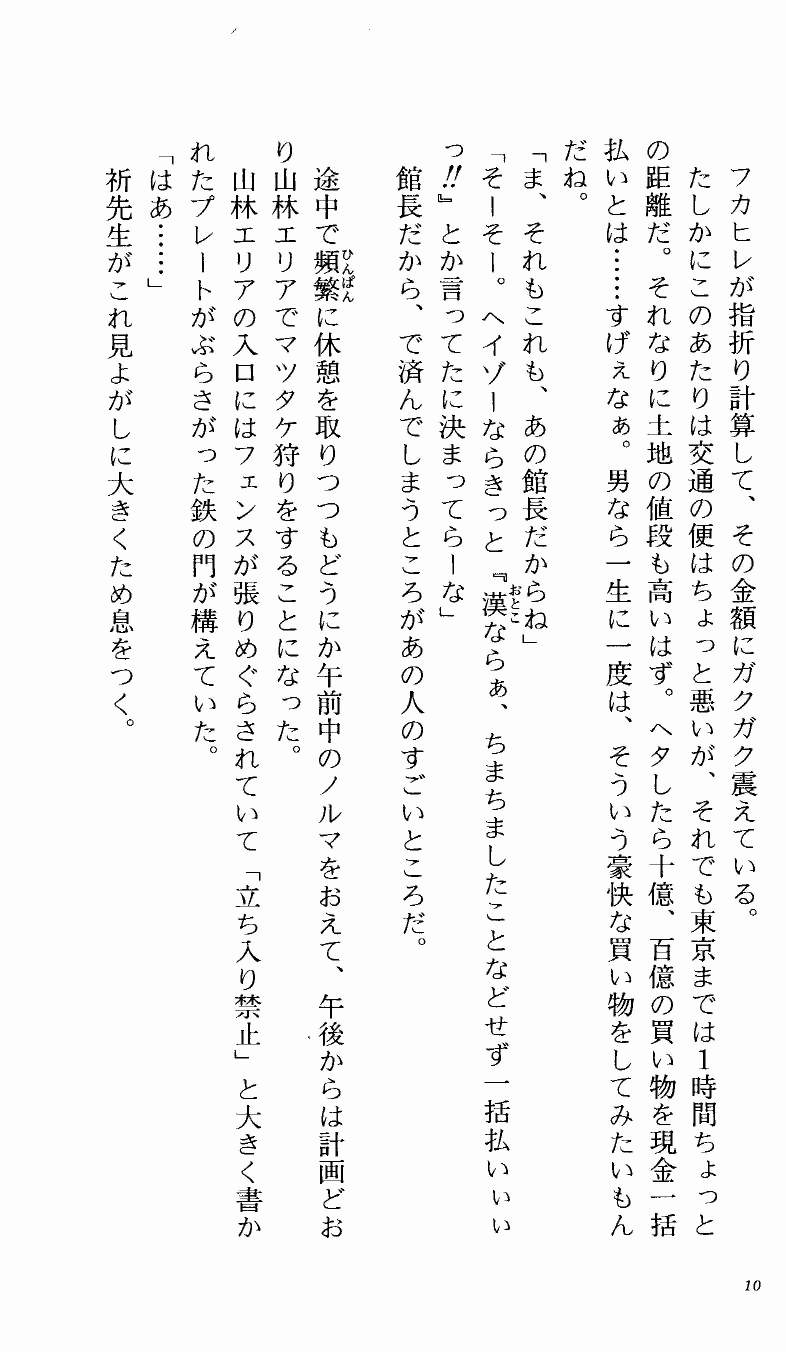 フカヒレが指折り計算して、その金額にガクガク震えている。
たしかにこのあたりは交通の便はちょっと悪いが、それでも東京までは1時間ちょっと
の距離だ。それなりに土地の値段も高いはず。ヘタしたら十億、百億の買い物を現金一括
払いとは……すげぇなぁ。男なら一生に一度は、そういう豪快な買い物をしてみたいもん
だね。
「ま、それもこれも、あの館長だからね」
「そーそー。ヘイゾーならきっと『漢ならぁ、ちまちましたことなどせず一括払いぃぃ
っ!!』とか言ってたに決まってらーな」
館長だから、で済んでしまうところがあの人のすごいところだ。
途中で頻繁に休憩を取りつつもどうにか午前中のノルマをおえて、午後からは計画どお
り山林エリアでマツタケ狩りをすることになった。
山林エリアの入口にはフェンスが張りめぐらされていて「立ち入り禁止」と大きく書か
れたプレートがぶらさがった鉄の門が構えていた。
「はあ……」
祈先生がこれ見よがしに大きくため息をつく。
おとこ
ひんぱん
10